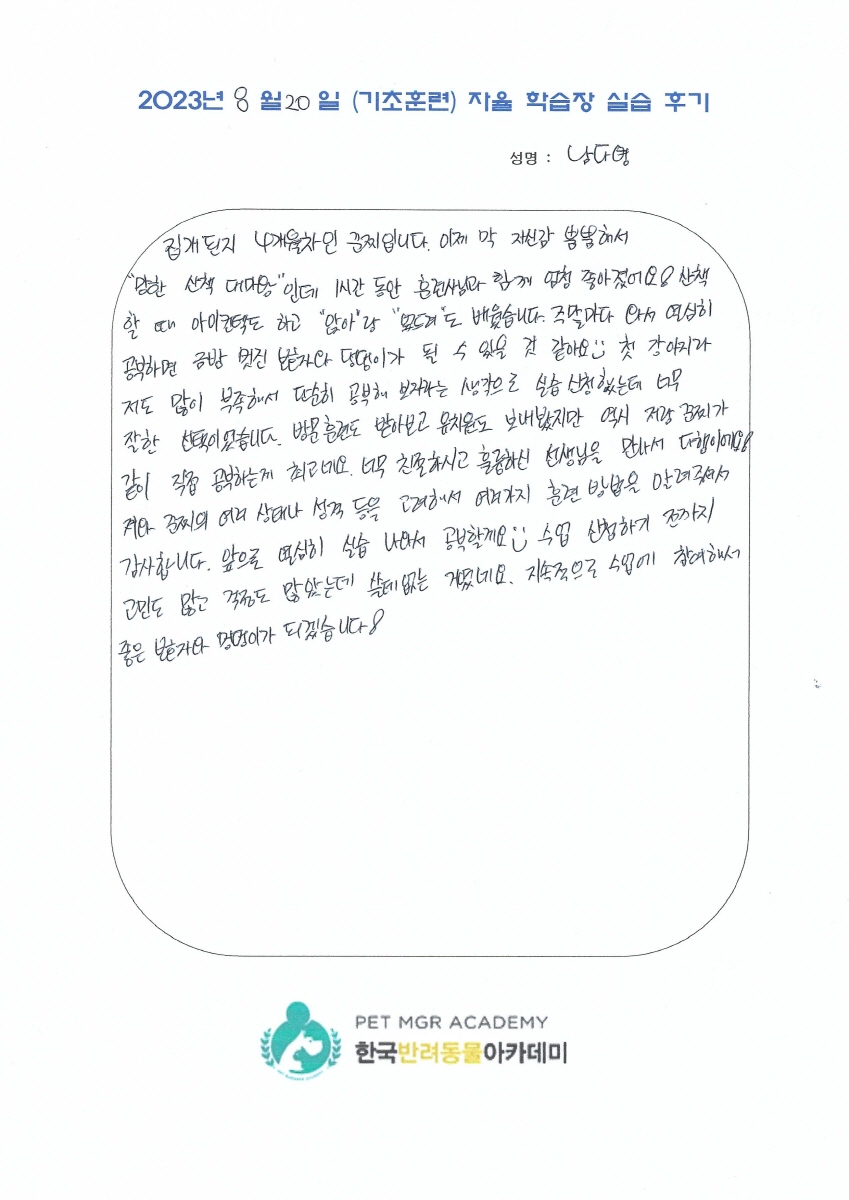 2023년 8월 20일 (기초훈련) 자율 학습장 실습 후기
성명 : 남다영
집개된지 4개월차인 꾼찌입니다. 이제 막 자신감 뿜뿜해서
"망한 산책 대마왕"인데 1시간 동안 훈련사님과 함께 엄청 좋아졌어요! 산책
할 때 아이컨택도 하고 "앉아"랑 "엎드려"도 배웠습니다. 주말마다 와서 열심히
공부하면 금방 멋진 보호자와 댕댕이가 될 수 있을 것 같아요☺ 첫 강아지라
저도 많이 부족해서 단순히 공부해 보자라는 생각으로 실습 신청했는데 너무
잘한 선택이었습니다. 방문훈련도 받아보고 유치원도 보내봤지만 역시 저랑 꾼찌가
같이 직접 공부하는게 최고네요. 너무 친절하시고 훌륭하신 선생님을 만나서 다행이에요!
저와 꾼찌의 여러 상태나 성격 등을 고려해서 여러가지 훈련 방법을 알려주셔서
감사합니다. 앞으로 열심히 실습 나와서 공부할게요☺ 수업 신청하기 전까지
고민도 많고 걱정도 많았는데 쓸데없는 거였네요. 지속적으로 수업에 참여해서
좋은 보호자와 멍멍이가 되겠습니다!
PET MGR ACADEMY
한국반려동물아카데미